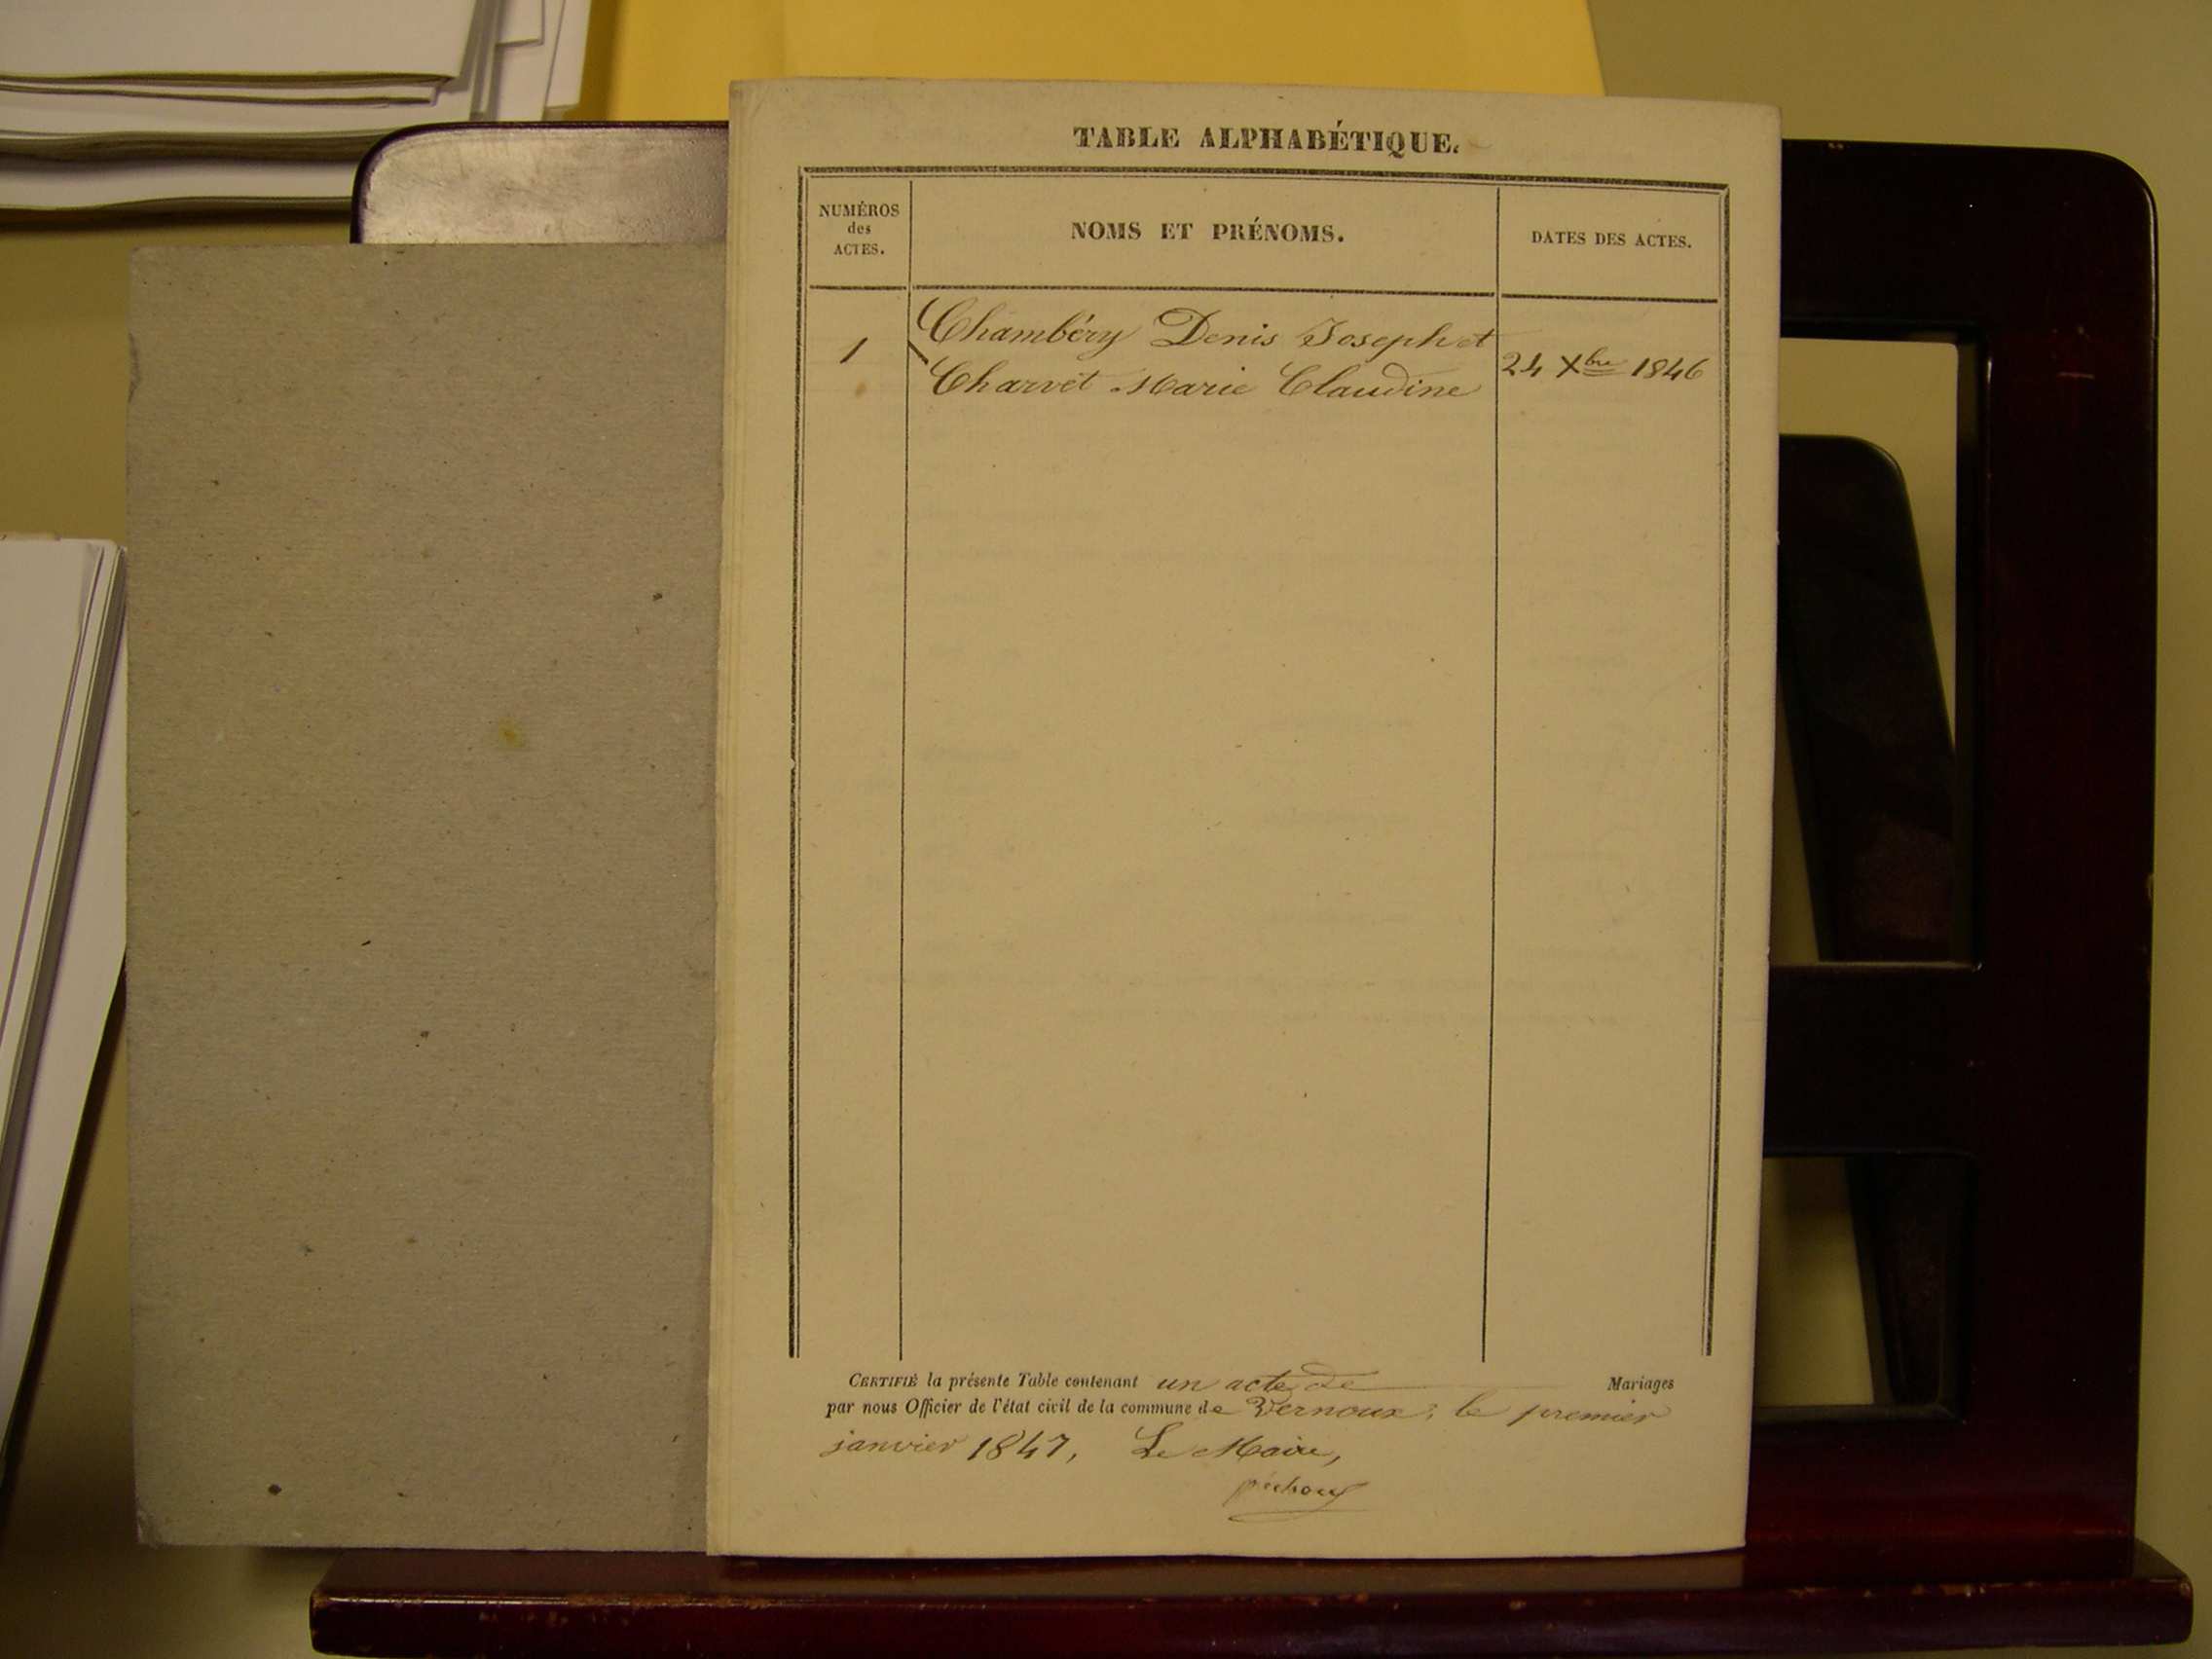 TABLE ALPHABÉTIQUE.
NUMÉROS
des
ACTES.
NOMS ET PRÉNOMS.
DATES DES ACTES.
1
Chambéry Denis Joseph et
Charvet Marie Claudine
24 Xbre 1846
CERTIFIÉ la présente Table contenant un acte de Mariages
par nous Officier de l'état civil de la commune de Vernoux, le premier
janvier 1847, Le Maire,